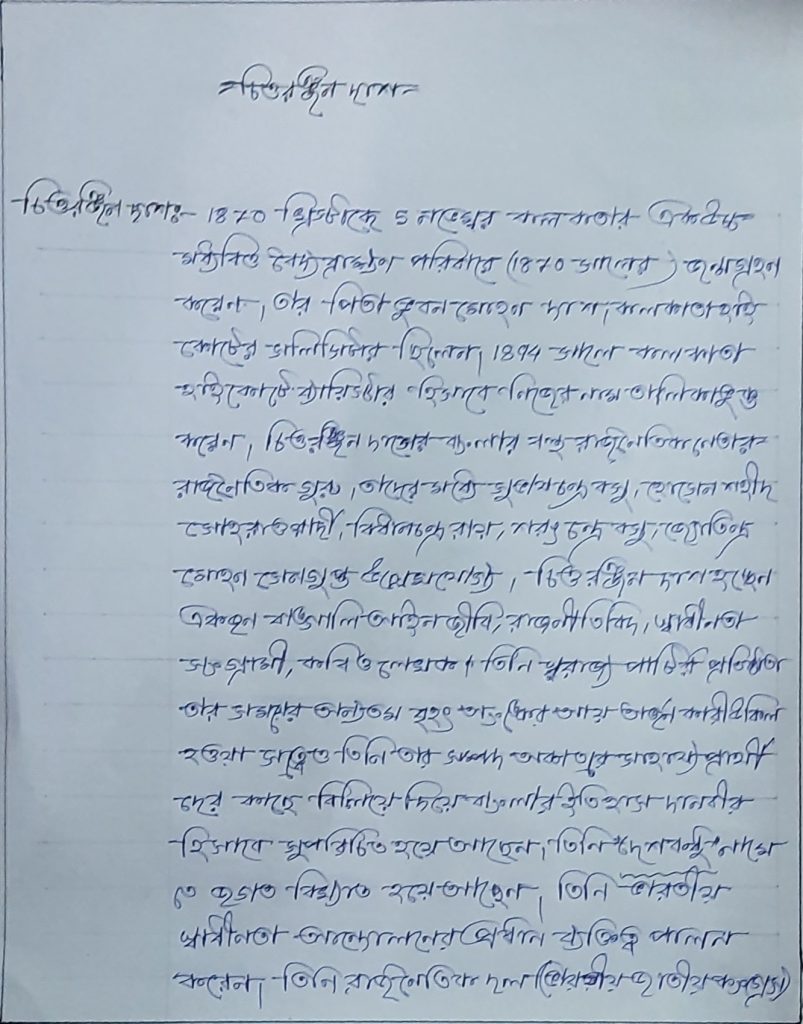 =চিত্তরঞ্জন দাশ=
চিত্তরঞ্জন দাশঃ- 1870 খ্রিস্টাব্দে 5 নভেম্বর কলকাতার এক উচ্চ
মধ্যবিত্ত বৈদ্যব্রাহ্মণ পরিবারে (1870 সালের) জন্মগ্রহন
করেন, তার পিতা ভুবন মোহন দাশ, কলকাতা হাই
কোর্টের সলিসিটার ছিলেন, 1894 সালে কলকাতা
হাইকোর্টে ব্যারিস্টার হিসাবে নিজের নাম তালিকাভুক্ত
করেন, চিত্তরঞ্জন দাশের বাংলার বহু রাজনৈতিক নেতার
রাজনৈতিক গুরু, তাদের মধ্যে সুভাষচন্দ্র বসু, হোসেন শহীদ
সোহরাওয়ার্দী, বিধানচন্দ্র রায়, শরৎ চন্দ্র বসু, জ্যোতিন্দ্র
মোহন সেনগুপ্ত উল্লেখযোগ্য, চিত্তরঞ্জন দাশ হচ্ছেন
একজন বাঙ্গালি আইনজীবি, রাজনীতিবিদ, স্বাধীনতা
সংগ্রামী, কবি ও লেখক। তিনি স্বরাজ্য পার্টির প্রতিষ্ঠাতা
তার সময়ের অন্যতম বৃহৎ অঙ্কের আয় অর্জন কারী উকিল
হওয়া সত্ত্বেও তিনি তার সম্পদ অকাতরে সাহায্যে প্রার্থী
দের কাছে বিলিয়ে দিয়ে বাংলার ইতিহাস দানবীর
হিসাবে সুপরিচিত হয়ে আছেন, তিনি দেশবন্ধু নামে
তে জগত বিখ্যাত হয়ে আছেন, তিনি ভারতীয়
স্বাধীনতা আন্দোলনের প্রধান ব্যক্তিত্ব পালন
করেন, তিনি রাজনৈতিক দল (ভারতীয় জাতীয় কংগ্রেস)